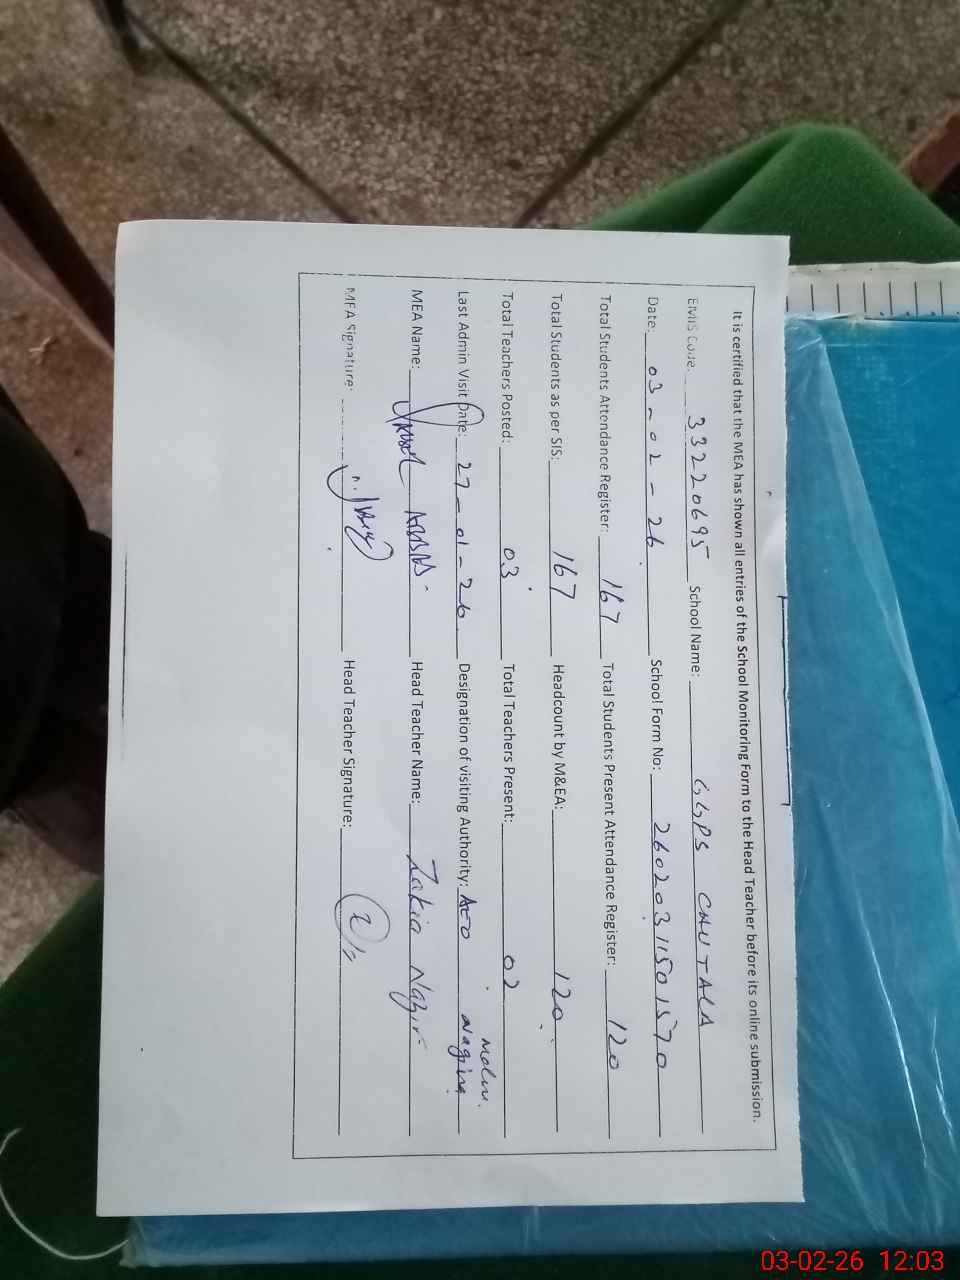 It is certified that the MEA has shown all entries of the School Monitoring Form to the Head Teacher before its online submission.
EMIS Code: 33220695 School Name: GGPS CHUTALA
Date: 03-02-26 School Form No: 26020311501570
Total Students Attendance Register: 167 Total Students Present Attendance Register: 120
Total Students as per SIS: 167 Headcount by M&EA: 120
Total Teachers Posted: 03 Total Teachers Present: 02
Last Admin Visit Date: 27-01-26 Designation of visiting Authority: AEO Nagina
MEA Name: ABBAS Head Teacher Name: Zakia Nazir
MEA Signature: Head Teacher Signature:
03-02-26 12:03